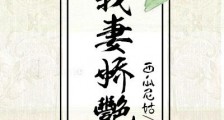 我妻娇艷
西瓜尼姑